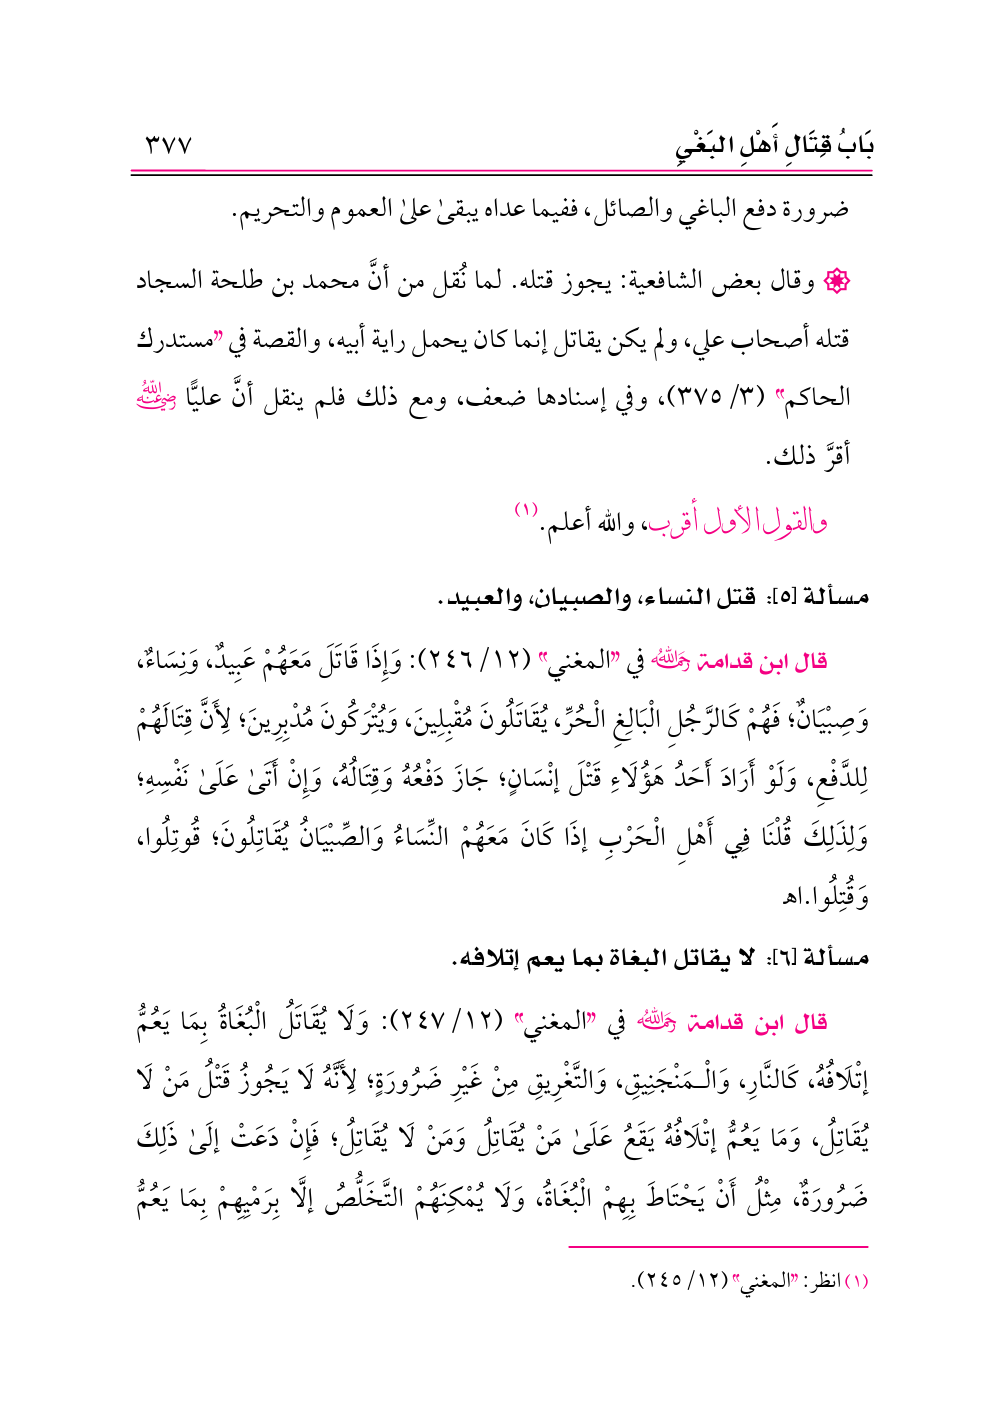 بَابُ قِتَالِ أَهْلِ البَغْيِ ٣٧٧
ضرورة دفع الباغي والصائل، ففيما عداه يبقىٰ علىٰ العموم والتحريم.
وقال بعض الشافعية: يجوز قتله. لما نُقل من أنَّ محمد بن طلحة السجاد
قتله أصحاب علي، ولم يكن يقاتل إنما كان يحمل راية أبيه، والقصة في "مستدرك
الحاكم" (٣/ ٣٧٥)، وفي إسنادها ضعف، ومع ذلك فلم ينقل أنَّ عليًّا رضي الله عنه
أقرَّ ذلك.
والقول الأول أقرب، والله أعلم.(١)
مسألة [٥]: قتل النساء، والصبيان، والعبيد.
قال ابن قدامة رحمه الله في "المغني" (١٢/ ٢٤٦): وَإِذَا قَاتَلَ مَعَهُمْ عَبِيدٌ، وَنِسَاءٌ،
وَصِبْيَانٌ؛ فَهُمْ كَالرَّجُلِ الْبَالِغِ الْحُرِّ، يُقَاتَلُونَ مُقْبِلِينَ، وَيُتْرَكُونَ مُدْبِرِينَ؛ لِأَنَّ قِتَالَهُمْ
لِلدَّفْعِ، وَلَوْ أَرَادَ أَحَدُ هَؤُلَاءِ قَتْلَ إنْسَانٍ؛ جَازَ دَفْعُهُ وَقِتَالُهُ، وَإِنْ أَتَىٰ عَلَىٰ نَفْسِهِ؛
وَلِذَلِكَ قُلْنَا فِي أَهْلِ الْحَرْبِ إذَا كَانَ مَعَهُمْ النِّسَاءُ وَالصِّبْيَانُ يُقَاتِلُونَ؛ قُوتِلُوا،
وَقُتِلُوا.اهـ
مسألة [٦]: لا يقاتل البغاة بما يعم إتلافه.
قال ابن قدامة رحمه الله في "المغني" (١٢/ ٢٤٧): وَلَا يُقَاتَلُ الْبُغَاةُ بِمَا يَعُمُّ
إتْلَافُهُ، كَالنَّارِ، وَالْـمَنْجَنِيقِ، وَالتَّغْرِيقِ مِنْ غَيْرِ ضَرُورَةٍ؛ لِأَنَّهُ لَا يَجُوزُ قَتْلُ مَنْ لَا
يُقَاتِلُ، وَمَا يَعُمُّ إتْلَافُهُ يَقَعُ عَلَىٰ مَنْ يُقَاتِلُ وَمَنْ لَا يُقَاتِلُ؛ فَإِنْ دَعَتْ إلَىٰ ذَلِكَ
ضَرُورَةٌ، مِثْلُ أَنْ يَحْتَاطَ بِهِمْ الْبُغَاةُ، وَلَا يُمْكِنَهُمْ التَّخَلُّصُ إلَّا بِرَمْيِهِمْ بِمَا يَعُمُّ
(١) انظر: "المغني" (١٢/ ٢٤٥).